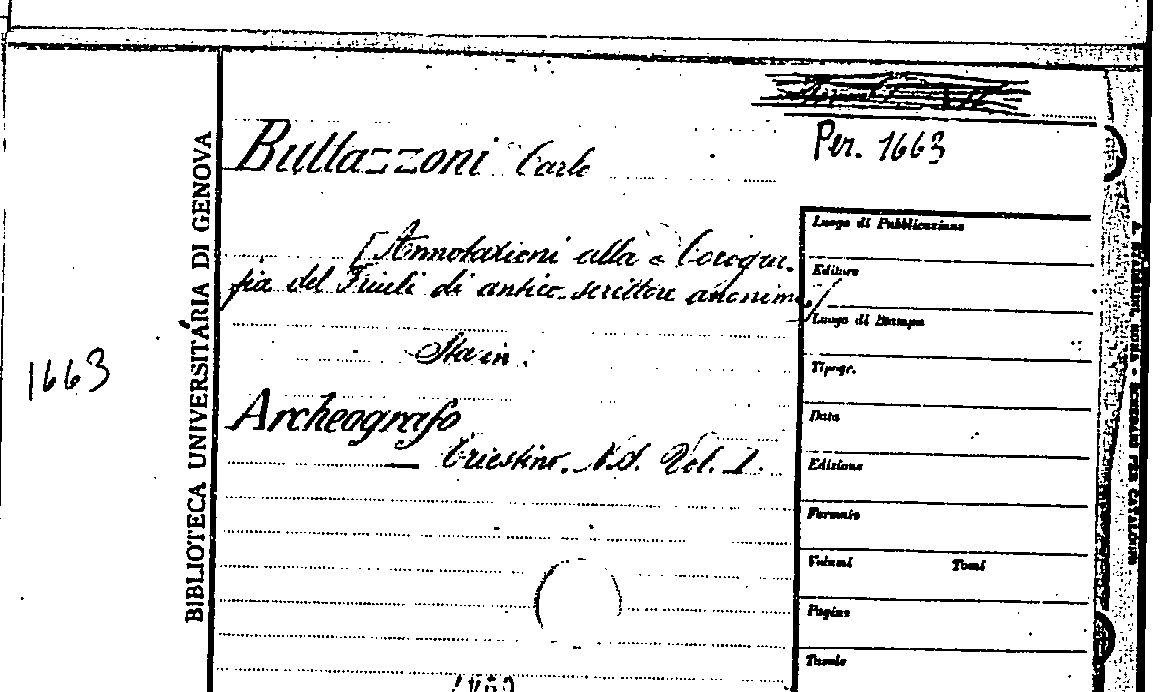 Per. 1663
Buttazzoni Carlo
[Annotazioni alla "Corogra-
fia del Friuli di antico scrittore anonimo]
Sta in:
Archeografo
Triestino. N.S. Vol. I.
1663
BIBLIOTECA UNIVERSITARIA DI GENOVA
Luogo di Pubblicazione
Editore
Luogo di Stampa
Tipogr.
Data
Edizione
Formato
Volumi Tomi
Pagine
Tavole